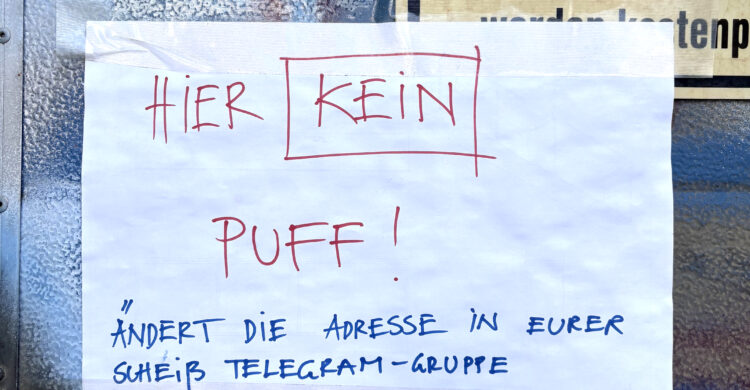 werden kostenp
HIER KEIN
PUFF!
ÄNDERT DIE ADRESSE IN EURER
SCHEIß TELEGRAM-GRUPPE